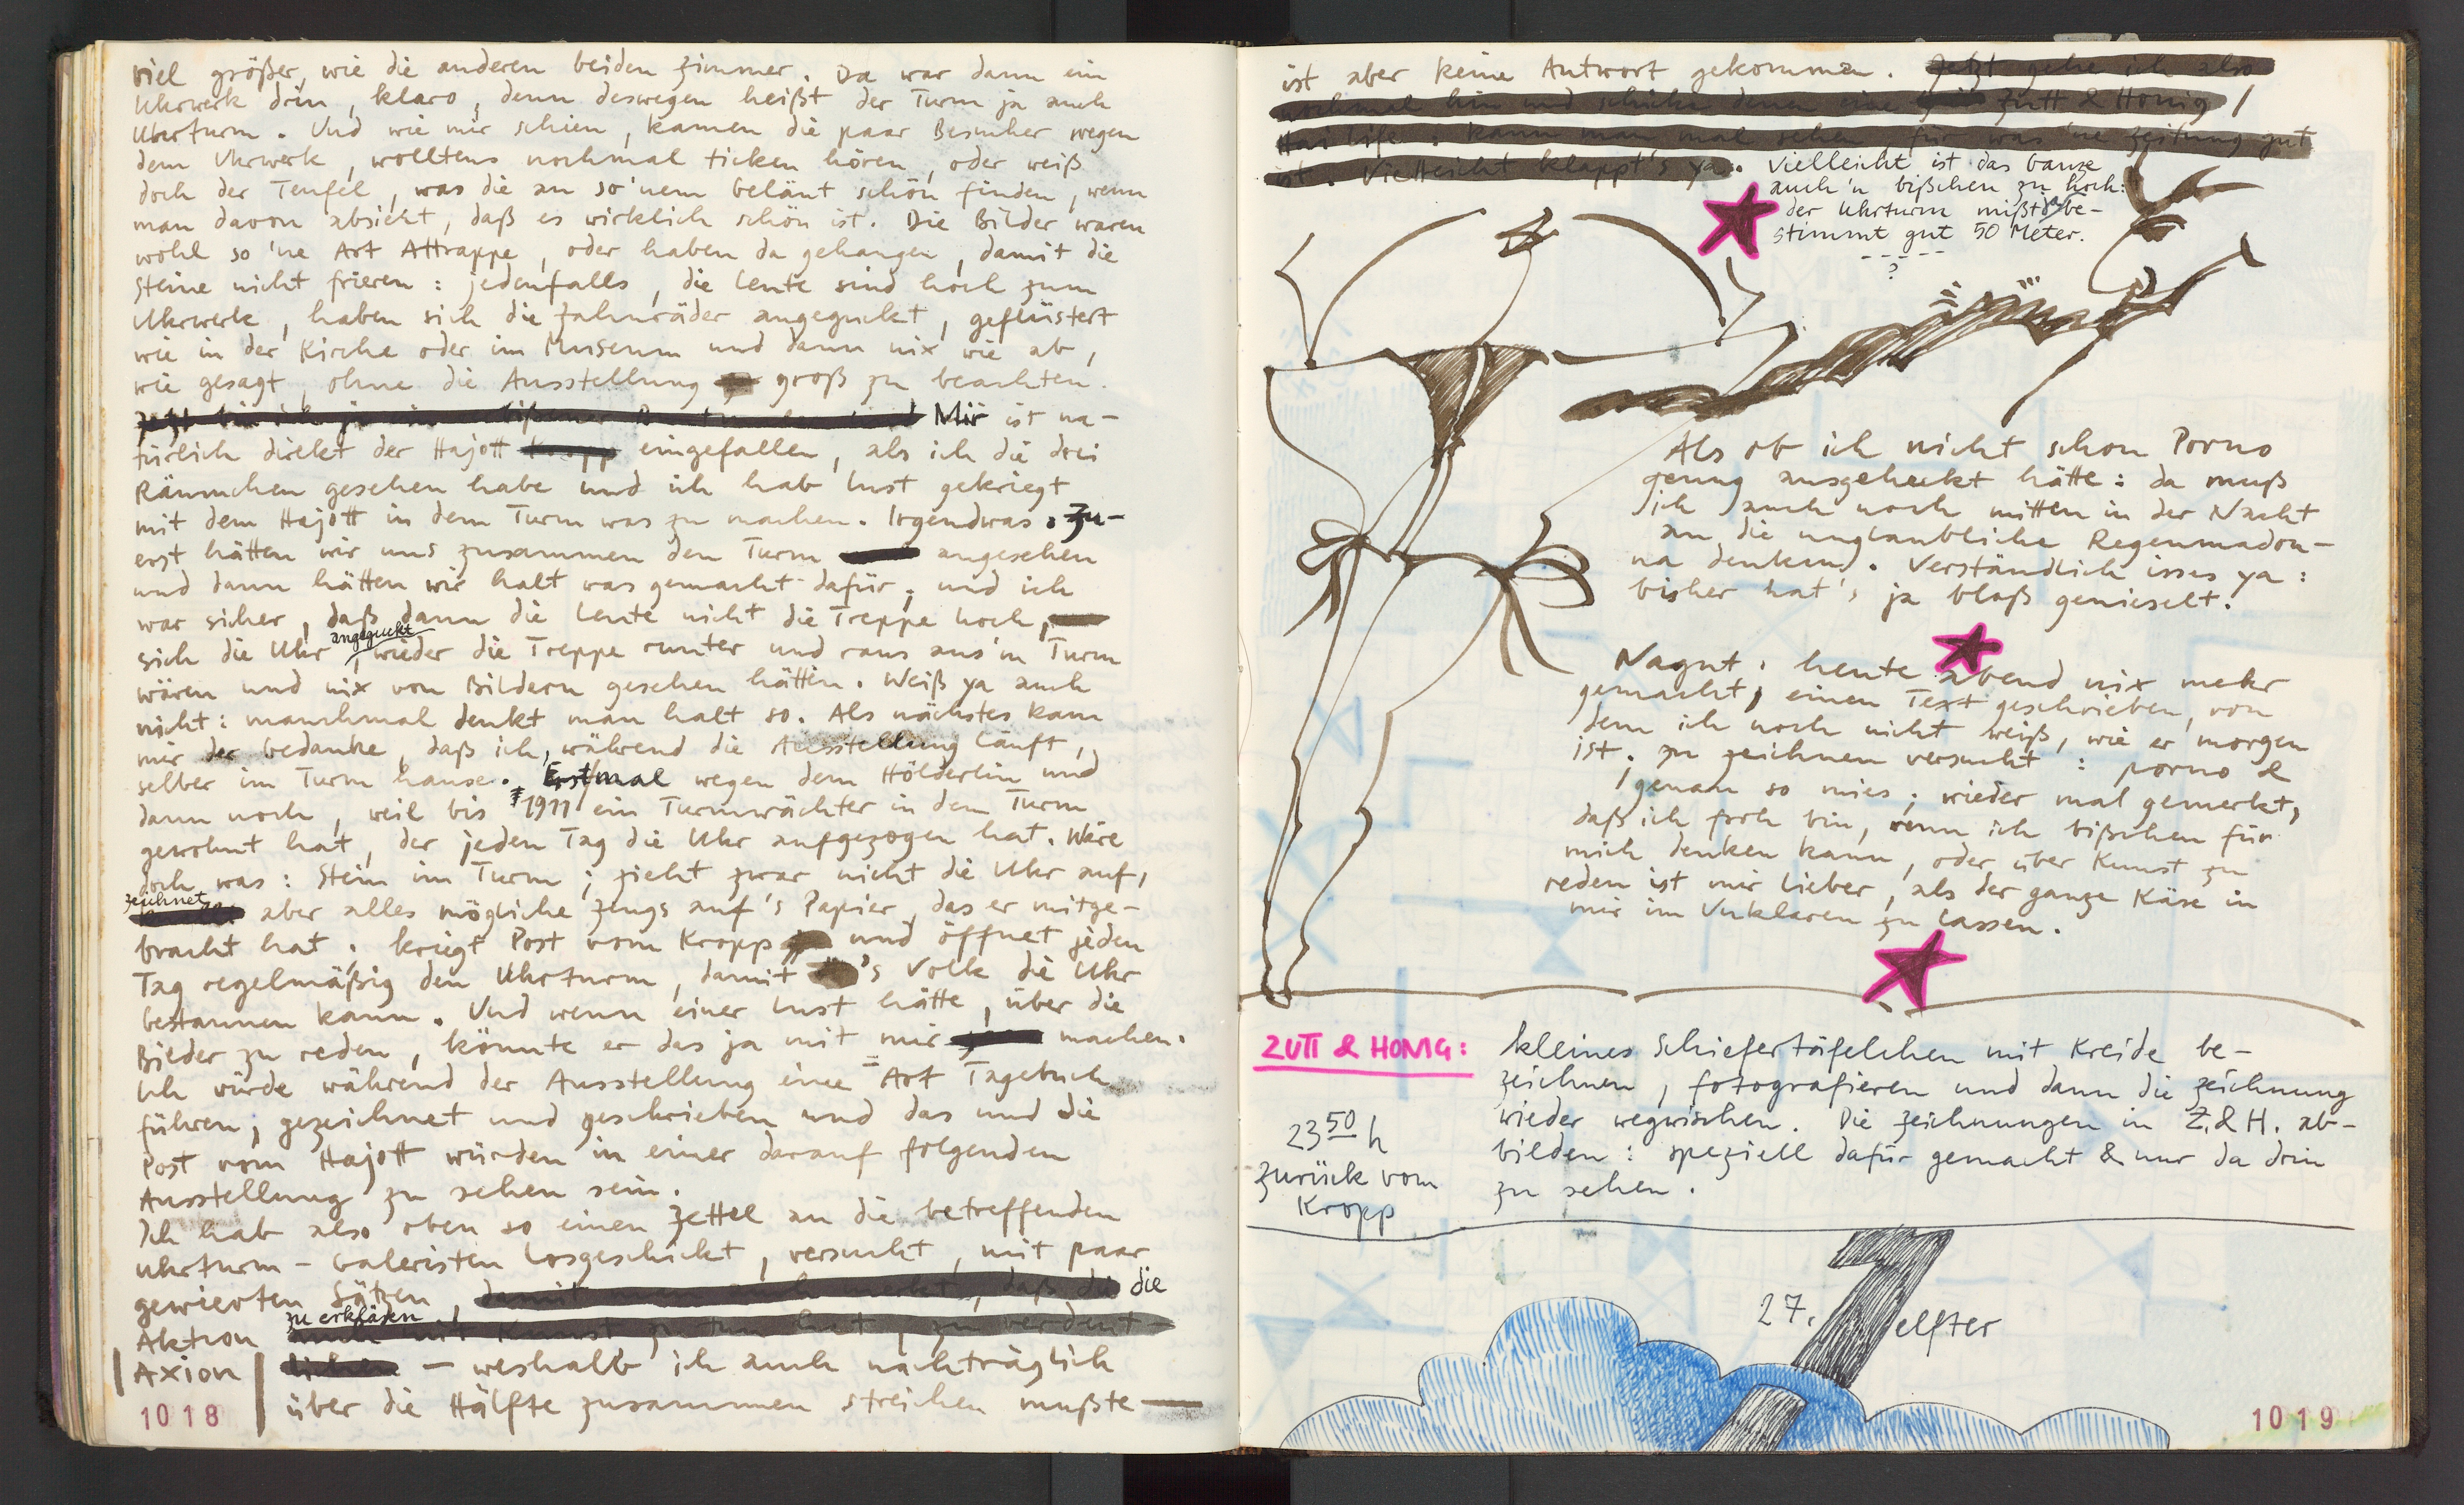 viel größer, wie die anderen beiden Zimmer. Da war dann ein
Uhrwerk drin, klaro, denn deswegen heißt der Turm ja auch
Uhrturm. Und wie mir schien, kamen die paar Besucher wegen
dem Uhrwerk, wolltens nochmal ticken hören, oder weiß
doch der Teufel, was die an so'nem Geläut schön finden, wenn
man davon absieht, daß es wirklich schön ist. Die Bilder waren
wohl so 'ne Art Attrappe, oder haben da gehangen, damit die
Steine nicht frieren: jedenfalls, die Leute sind hoch zum
Uhrwerk, haben sich die Zahnräder angeguckt, geflüstert
wie in der Kirche oder im Museum und dann nix wie ab,
wie gesagt, ohne die Ausstellung groß zu beachten.
Mir ist na-
türlich direkt der Hajott Kropp eingefallen, als ich die drei
Räumchen gesehen habe und ich hab Lust gekriegt
mit dem Hajott in dem Turm was zu machen. Irgendwas. Zu-
erst hätten wir uns zusammen den Turm angesehen
und dann hätten wir halt was gemacht dafür; und ich
war sicher, daß dann die Leute nicht die Treppe hoch,
sich die Uhr angeguckt, wieder die Treppe runter und raus aus'm Turm
wären und nix von Bildern gesehen hätten. Weiß ya auch
nicht: manchmal denkt man halt so. Als nächstes kam
mir der Gedanke, daß ich, während die Ausstellung läuft,
selber im Turm hause. Erstmal wegen dem Hölderlin und
dann noch, weil bis 1911 ein Turmwächter in dem Turm
gewohnt hat, der jeden Tag die Uhr aufgezogen hat. Wäre
doch was: Stein im Turm; zieht zwar nicht die Uhr auf,
zeichnet aber alles mögliche Zeugs auf's Papier, das er mitge-
bracht hat, kriegt Post vom Kropp und öffnet jeden
Tag regelmäßig den Uhrturm, damit 's Volk die Uhr
bestaunen kann. Und wenn einer Lust hätte, über die
Bilder zu reden, könnte er das ja mit mir machen.
Ich würde während der Ausstellung eine Art Tagebuch
führen; gezeichnet und geschrieben und das und die
Post vom Hajott würden in einer darauf folgenden
Ausstellung zu sehen sein.
Ich hab also oben so einen Zettel an die betreffenden
Uhrturm-Galeristen losgeschickt, versucht, mit paar
gewieften Sätzen, damit man auch merkt, daß die die
Aktion zu erklären auch mit Kunst zu tun hat, zu verdeut-
Axion lichen – weshalb ich auch nachträglich
über die Hälfte zusammen streichen mußte —
1018
ist aber keine Antwort gekommen. Jetzt gehe ich also
nochmal hin und schicke denen eine Zutt & Honig /
für was 'ne Zeitung gut
ist. Vielleicht klappt's ya. Vielleicht ist das Ganze
auch 'n bißchen zu hoch:
der Uhrturm mißt be-
stimmt gut 50 Meter.
?
Als ob ich nicht schon Porno
genug ausgeheckt hätte: da muß
ich auch noch mitten in der Nacht
an die unglaubliche Regenmadon-
na denken. Verständlich isses ya:
bisher hat's ja bloß genieselt.
Nagut, heute abend nix mehr
gemacht, einen Text geschrieben, von
dem ich noch nicht weiß, wie er morgen
ist. Zu zeichnen versucht: porno &
genau so mies; wieder mal gemerkt,
daß ich froh bin, wenn ich bißchen für
mich denken kann, oder über Kunst zu
reden ist mir lieber, als der ganze Käse in
mir im Unklaren zu lassen.
ZUTT & HONIG:
kleines Schiefertäfelchen mit Kreide be-
zeichnen, fotografieren und dann die Zeichnung
wieder wegwischen. Die Zeichnungen in Z.&H. ab-
bilden: speziell dafür gemacht & nur da drin
zu sehen.
23 50 h
zurück vom
Kropp
27. elfter
1019